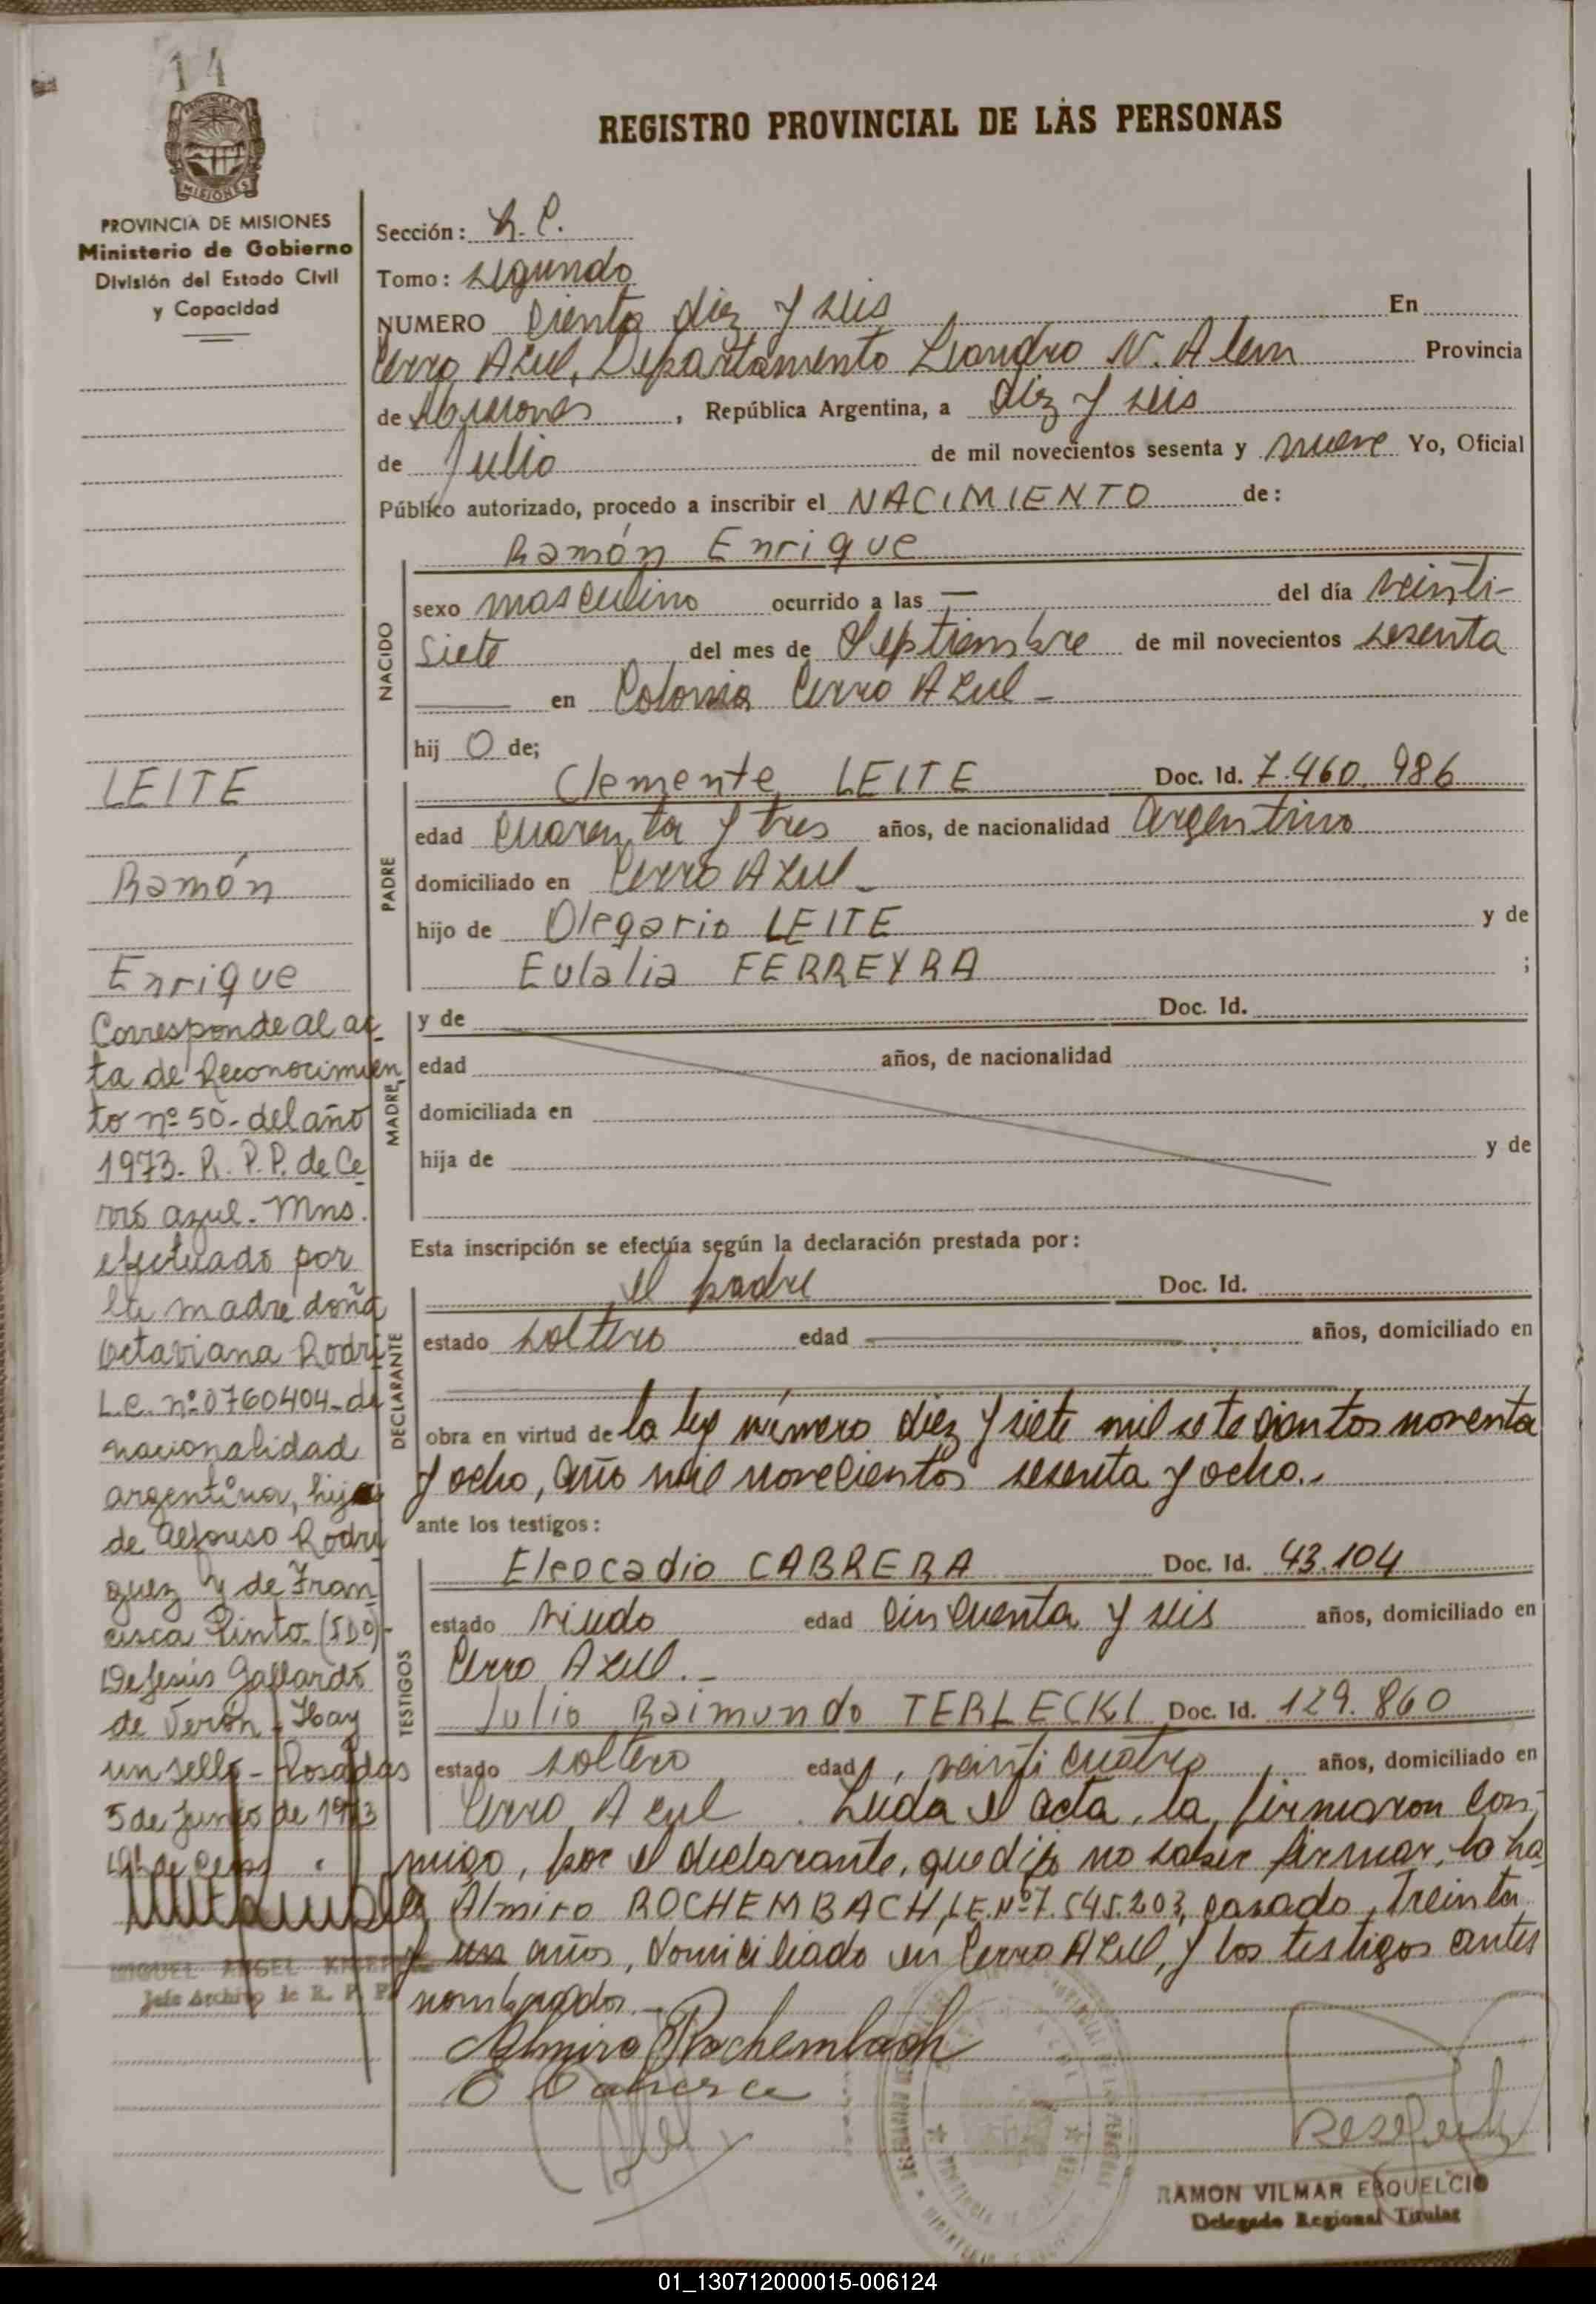 14
REGISTRO PROVINCIAL DE LAS PERSONAS
MISIONES
PROVINCIA DE MISIONES
Ministerio de Gobierno
División del Estado Civil
y Capacidad
Sección: R. P.
Tomo: segundo
NUMERO Ciento diez y seis En
Cerro Azul, Departamento Leandro N. Alem Provincia
de Misiones, República Argentina, a diez y seis
de Julio de mil novecientos sesenta y nueve Yo, Oficial
Público autorizado, procedo a inscribir el NACIMIENTO de:
Ramón Enrique
NACIDO
sexo masculino ocurrido a las — del día veinti-
siete del mes de Septiembre de mil novecientos sesenta
en Colonia Cerro Azul -
hij o de;
PADRE
Clemente LEITE Doc. Id. 7.460.986
edad cuarenta y tres años, de nacionalidad argentino
domiciliado en Cerro Azul -
hijo de Olegario LEITE y de
Eulalia FERREYRA ;
MADRE
y de Doc. Id.
edad años, de nacionalidad
domiciliada en
hija de y de
Esta inscripción se efectúa según la declaración prestada por:
DECLARANTE
el padre Doc. Id.
estado soltero edad años, domiciliado en
obra en virtud de la ley número diez y siete mil setecientos noventa
y ocho, año mil novecientos sesenta y ocho.-
ante los testigos:
TESTIGOS
Eleocadio CABRERA Doc. Id. 43.104
estado viudo edad cincuenta y seis años, domiciliado en
Cerro Azul.-
Julio Raimundo TERLECKI Doc. Id. 129.860
estado soltero edad veinticuatro años, domiciliado en
Cerro Azul. Leida el acta, la firmaron con-
migo, por el declarante, que dijo no saber firmar, lo ha
ce Almiro ROCHEMBACH, L.E. Nº 7.545.203, casado, treinta
y un años, domiciliado en Cerro Azul, y los testigos antes
nombrados.-
Almiro Rochembach
E Cabrera
RAMON VILMAR ESQUELCIO
Delegado Regional Titular
LEITE
Ramón
Enrique
Corresponde al ac
ta de Reconocimien
to nº 50- del año
1973- R. P. P. de Ce
rro azul. Mns.
efectuado por
la madre doña
Octaviana Rodri
L.C. nº 0760404- de
nacionalidad
argentina, hija
de Alfonso Rodri
guez y de Fran
cisca Pinto. (FDO)-
De Jesús Gallardo
de Verón. Hay
un sello - Posadas
5 de Junio de 1973
MIGUEL ANGEL
Jefe Archivo de R. P. P.
01_130712000015-006124